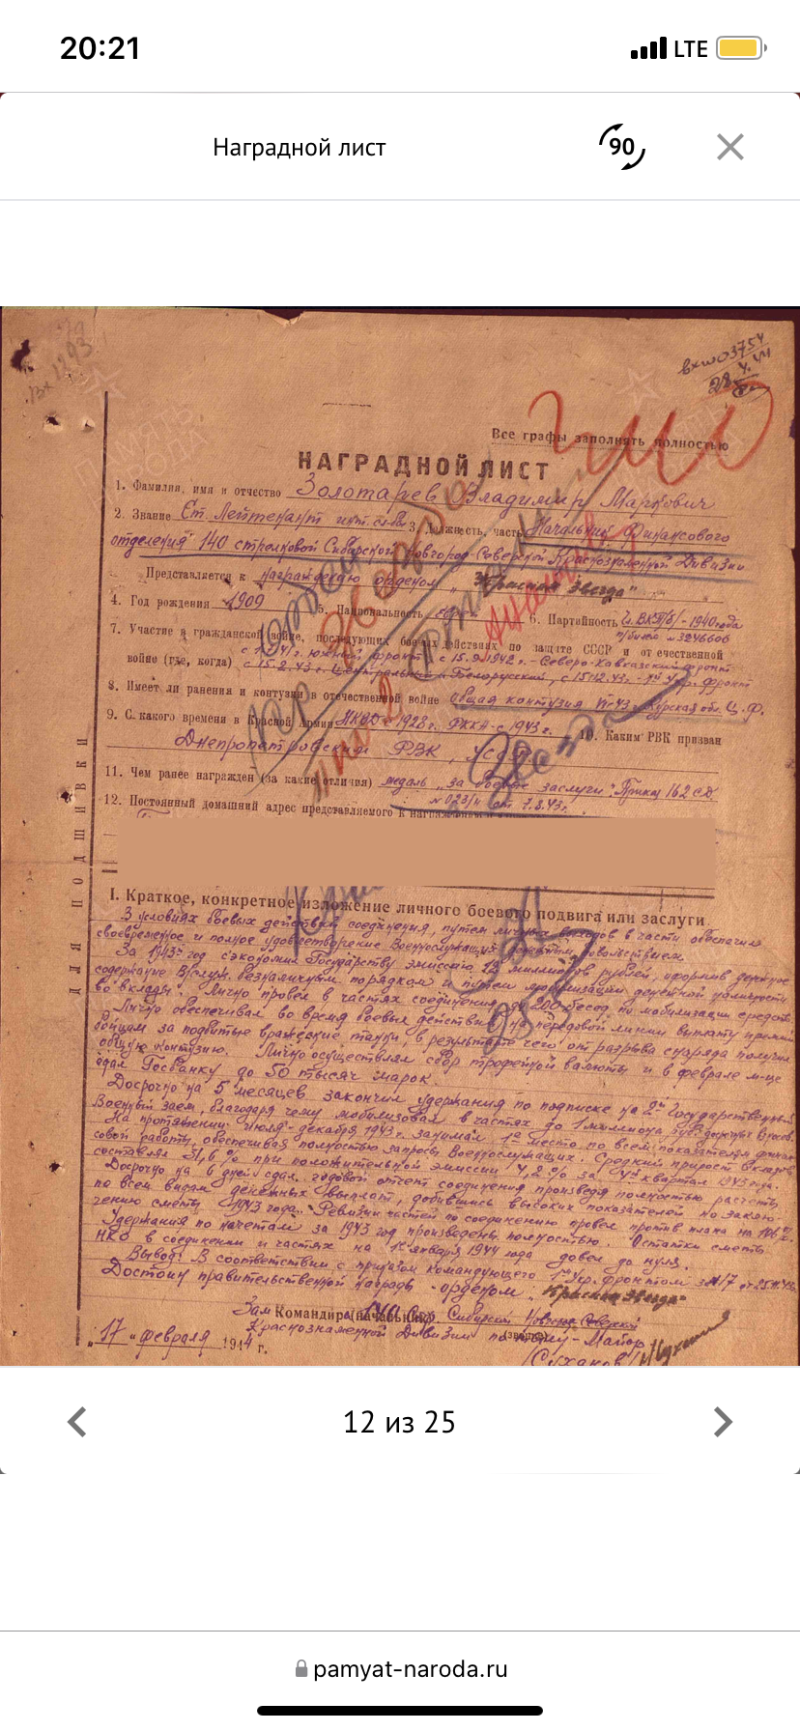 20:21
LTE
Наградной лист
90
вхш 03754
Все графы заполнять полностью
НАГРАДНОЙ ЛИСТ
1. Фамилия, имя и отчество Золотарев Владимир Маркович
2. Звание Ст. Лейтенант инт. службы 3. Должность, часть Начальник Финансового
отделения 140 стрелковой Сибирской Новгород-Северской Краснознаменной Дивизии
Представляется к награждению орденом "Красная Звезда"
4. Год рождения 1909 5. Национальность 6. Партийность Чл. ВКП(б) - 1940 года
п/билет № 3246606
7. Участие в гражданской войне, последующих боевых действиях по защите СССР и отечественной
войне (где, когда) южный фронт, с 15.9.1942 г. - Северо-Кавказский фронт
с 15.2.43 г. Центральный и Белорусский, с 15.12.43 г. 1й Укр. фронт
8. Имеет ли ранения и контузии в отечественной войне Общая контузия Курская обл. Ц.Ф.
9. С какого времени в Красной Армии НКВД с 1928 г. РККА с 1943 г.
10. Каким РВК призван
Днепропетровский РВК, УССР
11. Чем ранее награжден (за какие отличия) медаль "За боевые заслуги". Приказ 162 СД
№ 023/н от 7.8.43 г.
12. Постоянный домашний адрес представляемого к награждению
I. Краткое, конкретное изложение личного боевого подвига или заслуги
В условиях боевых действий соединения, путем личных выходов в части обеспечил
своевременное и полное удовлетворение Военнослужащих денежным довольствием.
За 1943 год сэкономил Государству эмиссию 12 миллионов рублей, оформив денежное
содержание В/служ. безналичным порядком и путем мобилизации денежной наличности
во вклады. Лично провел в частях соединения до 200 бесед по мобилизации средств.
Лично обеспечивал во время боевых действий на передовой линии выплату премий
бойцам за подбитые вражеские танки, в результате чего от разрыва снаряда получил
общую контузию. Лично осуществлял сбор трофейной валюты и в феврале м-це
сдал Госбанку до 50 тысяч марок.
Досрочно на 5 месяцев закончил удержания по подписке на 2й Государственный
Военный заем, благодаря чему мобилизовал в частях до 1 миллиона руб.
На протяжении июля-декабря 1943 г. занимал 1е место по всем показателям финан-
совой работы, обеспечивая полностью запросы Военнослужащих. Средний прирост вкладов
составлял 31,6% при положительной эмиссии 4,2% за 4й квартал 1943 года.
Досрочно на 6 дней сдал годовой отчет соединения произведя полностью расчеты
по всем видам денежных выплат, добившись высоких показателей по заклю-
чению сметы 1943 года. Ревизии частей по соединению провел против плана на 106%.
Удержания по начетам за 1943 год произведены полностью. Остатки сметы
НКО в соединении и частях на 1е января 1944 года довел до нуля.
Вывод: В соответствии с приказом командующего 1м Укр. фронтом
Достоин правительственной награды - орденом "Красная Звезда"
Зам Командира 140 Стр. Сибирской Новгород-Северской
Краснознаменной Дивизии по тылу - Майор
"17" февраля 1944 г. /Суханов/
ДЛЯ ПОДШИВКИ
ПАМЯТЬ
НАРОДА
12 из 25
pamyat-naroda.ru